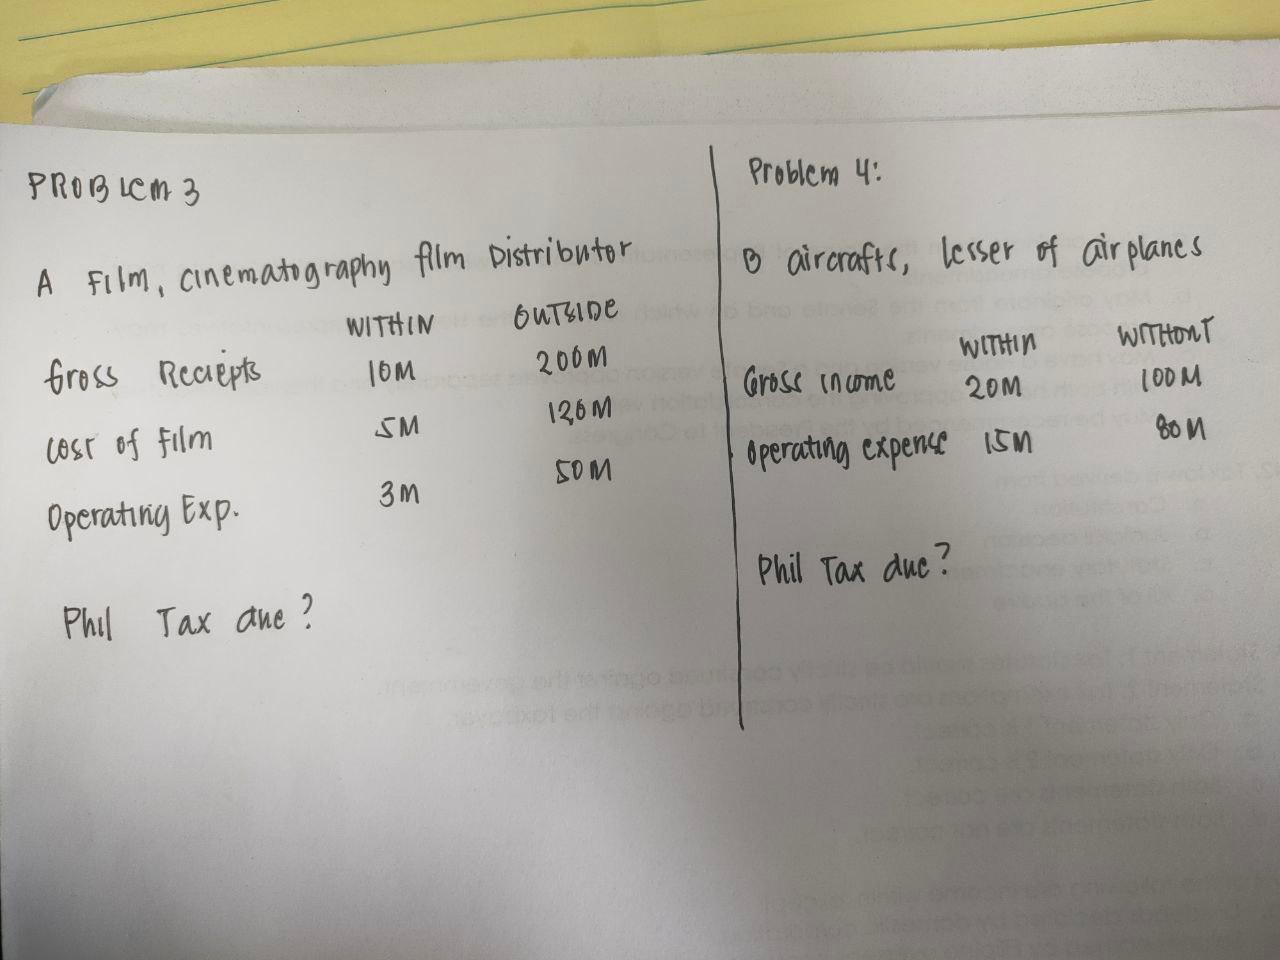 PROBLEM 3
A Film, cinematography film Distributor
WITHIN OUTSIDE
Gross Reciepts 10M 200M
cost of Film 5M 120M
Operating Exp. 3M 50M
Phil Tax due?
Problem 4:
B aircrafts, lesser of airplanes
WITHIN WITHOUT
Gross income 20M 100M
Operating expense 15M 80M
Phil Tax due?